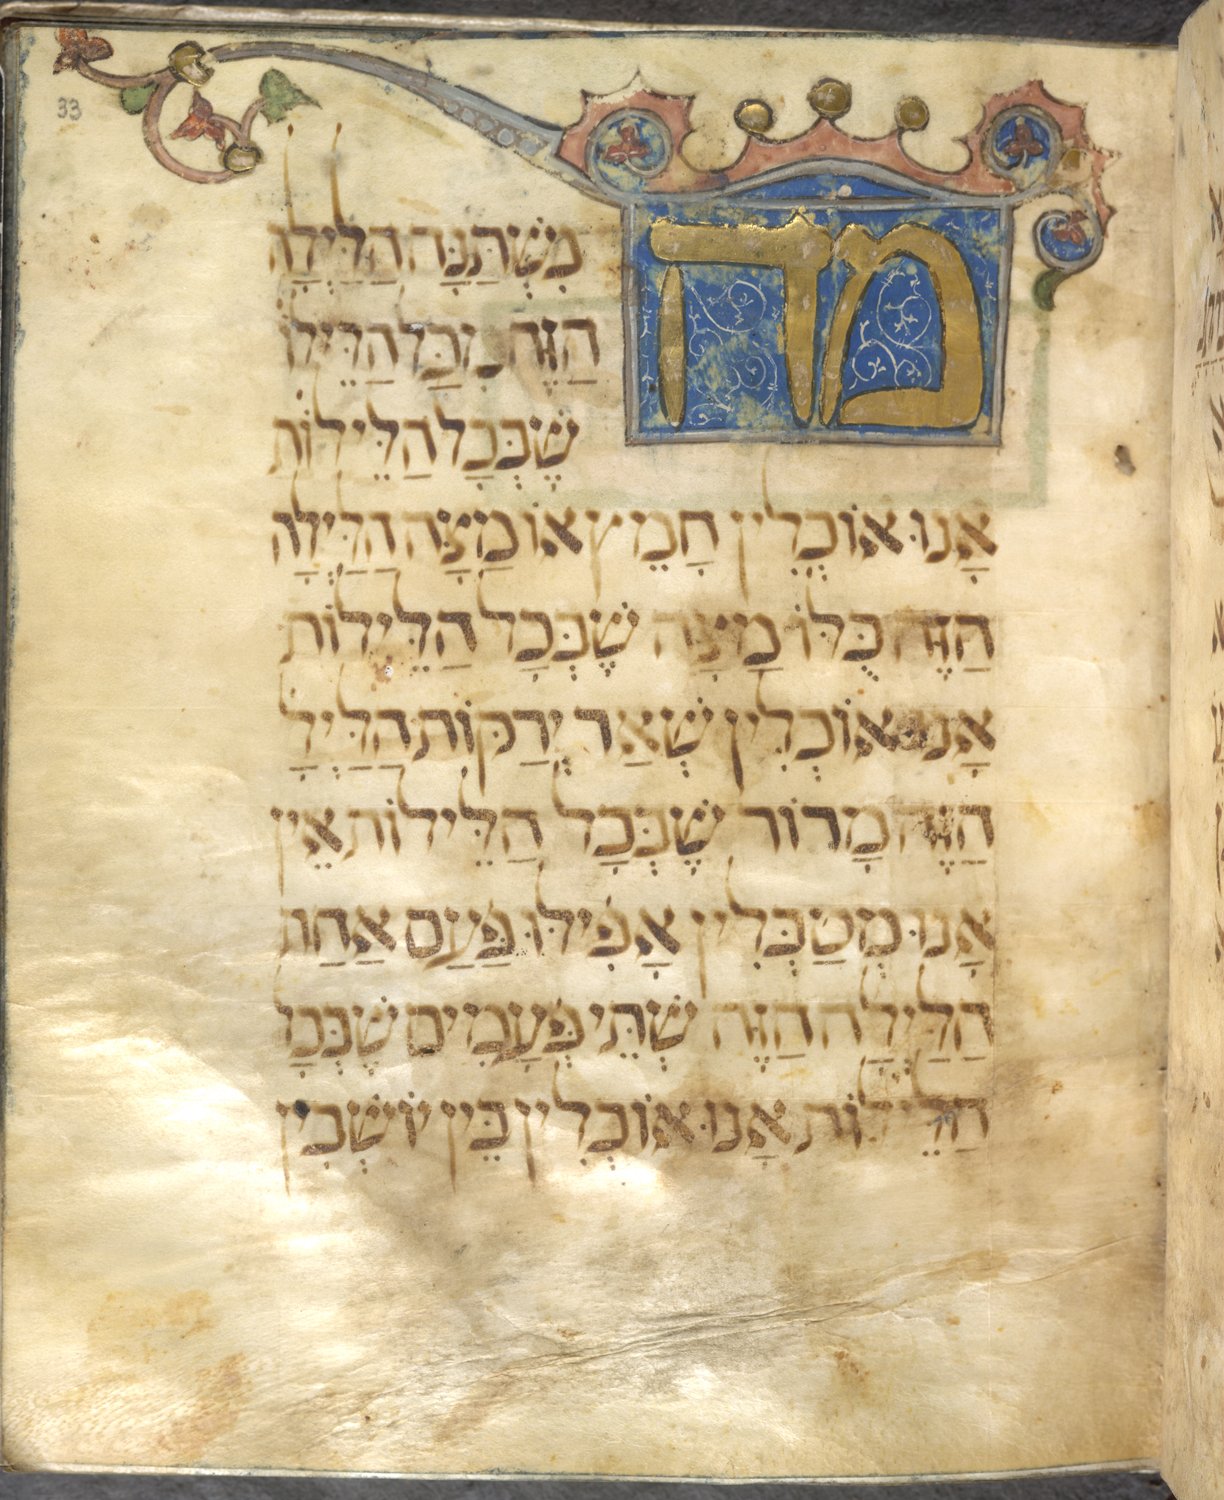 33
מה
מִשְׁתַּנָּה הַלַּיְלָה
הַזֶּה מִכָּל הַלֵּילוֹ
שֶׁבְּכָל הַלֵּילוֹת
אָנוּ אוֹכְלִין חָמֵץ אוֹ מַצָּה הַלַּיְלָה
הַזֶּה כֻּלּוֹ מַצָּה שֶׁבְּכָל הַלֵּילוֹת
אָנוּ אוֹכְלִין שְׁאַר יְרַקּוֹת הַלַּיְלָ
הַזֶּה מָרוֹר שֶׁבְּכָל הַלֵּילוֹת אֵין
אָנוּ מְטַבְּלִין אָפִילוּ פַּעַם אַחַת
הַלַּיְלָה הַזֶּה שְׁתֵּי פְּעָמִים שֶׁבְּכָל
הַלֵּילוֹת אָנוּ אוֹכְלִין בֵּין יוֹשְׁבִין